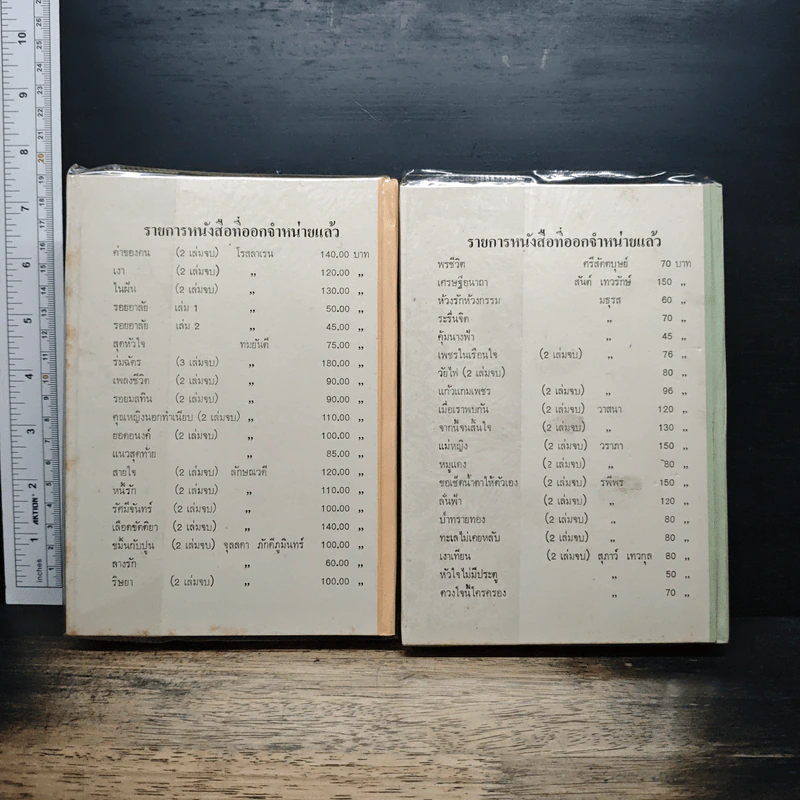 รายการหนังสือที่ออกจำหน่ายแล้ว
ค่าของคน (2 เล่มจบ) โรสลาเรน 140.00 บาท
เงา (2 เล่มจบ) ,, 120.00 ,,
ในฝัน (2 เล่มจบ) ,, 130.00 ,,
รอยอาลัย เล่ม 1 ,, 50.00 ,,
รอยอาลัย เล่ม 2 ,, 45.00 ,,
สุดหัวใจ ทมยันตี 75.00 ,,
ร่มฉัตร (3 เล่มจบ) ,, 180.00 ,,
เพลงชีวิต (2 เล่มจบ) ,, 90.00 ,,
รอยมลทิน (2 เล่มจบ) ,, 90.00 ,,
คุณหญิงนอกทำเนียบ (2 เล่มจบ) ,, 110.00 ,,
ยอดอนงค์ (2 เล่มจบ) ,, 100.00 ,,
แนวสุดท้าย ,, 85.00 ,,
สายใจ (2 เล่มจบ) ลักษณวดี 120.00 ,,
หนี้รัก (2 เล่มจบ) ,, 110.00 ,,
รัศมีจันทร์ (2 เล่มจบ) ,, 100.00 ,,
เลือดขัตติยา (2 เล่มจบ) ,, 140.00 ,,
ขมิ้นกับปูน (2 เล่มจบ) จุลลดา ภักดีภูมินทร์ 100.00 ,,
ลางรัก ,, 60.00 ,,
ริษยา (2 เล่มจบ) ,, 100.00 ,,
รายการหนังสือที่ออกจำหน่ายแล้ว
พรชีวิต ศรีสัตตบุษย์ 70 บาท
เศรษฐีอนาถา สันต์ เทวรักษ์ 150 ,,
ห้วงรักห้วงกรรม มธุรส 60 ,,
ระรื่นจิต ,, 70 ,,
คุ้มนางฟ้า ,, 45 ,,
เพชรในเรือนใจ (2 เล่มจบ) ,, 76 ,,
วัยไฟ (2 เล่มจบ) 80 ,,
แก้วแกมเพชร (2 เล่มจบ) ,, 96 ,,
เมื่อเราพบกัน (2 เล่มจบ) วาสนา 120 ,,
จากนี้จนสิ้นใจ (2 เล่มจบ) ,, 130 ,,
แม่หญิง (2 เล่มจบ) วราภา 150 ,,
หมูแดง (2 เล่มจบ) ,, 80 ,,
ขอเช็ดน้ำตาให้ตัวเอง (2 เล่มจบ) รพีพร 150 ,,
ลั่นฟ้า (2 เล่มจบ) ,, 120 ,,
ป่าทรายทอง (2 เล่มจบ) ,, 80 ,,
ทะเลไม่เคยหลับ (2 เล่มจบ) ,, 80 ,,
เงาเทียน (2 เล่มจบ) สุภาว์ เทวกุล 80 ,,
หัวใจไม่มีประตู ,, 50 ,,
ดวงใจนี้ใครครอง ,, 70 ,,
inches
AKTION
1
2
3
4
5
6
7
8
9
10